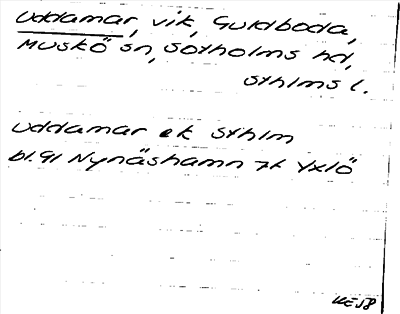 Uddamar, vik, Guldboda,
Muskö sn, Sotholms hd,
Sthlms l.
Uddamar ek Sthlm
bl. 91 Nynäshamn 7k Yxlö
KE 58